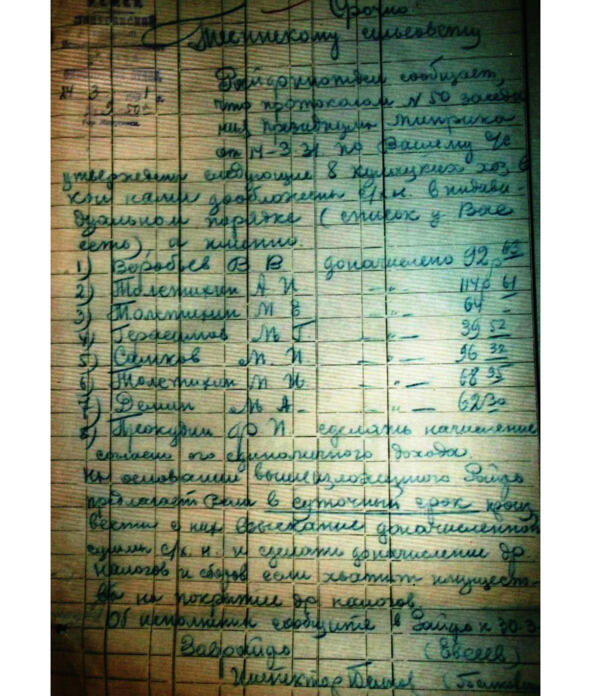 Срочно
Тесинскому сельсовету
сообщает,
что протоколом N 50 заседа
ния президиума
от 14-3-31 по Вашему
утверждены следующие 8 кулацких хоз в
кои нами дообложены с/хн в индиви-
дуальном порядке (список у Вас
есть), а именно
1) Воробьев В В. доначислено 92р 63
2) Толстихин А И -"- 114р 61
3) Толстихин М Е -"- 64 -
4) Герасимов М Г. -"- 39 52
5) М. И -"- 96 32
6) Толстихин М И. -"- 68 95
7) Демин М А. -"- 62 30
8) Прокудин Ф И сделать начисление
согласно его единоличного дохода.
На основании вышеизложенного Райдо
предлагает Вам в суточный срок произ
вести с них взыскание доначисленной
суммы с/х. н. и сделать доначисление др.
налогов и сборов если хватит имущест-
ва на покрытие др налогов.
Об исполнении сообщите в Райдо к 30-3
Заврайдо (Евсеев)
Инспектор